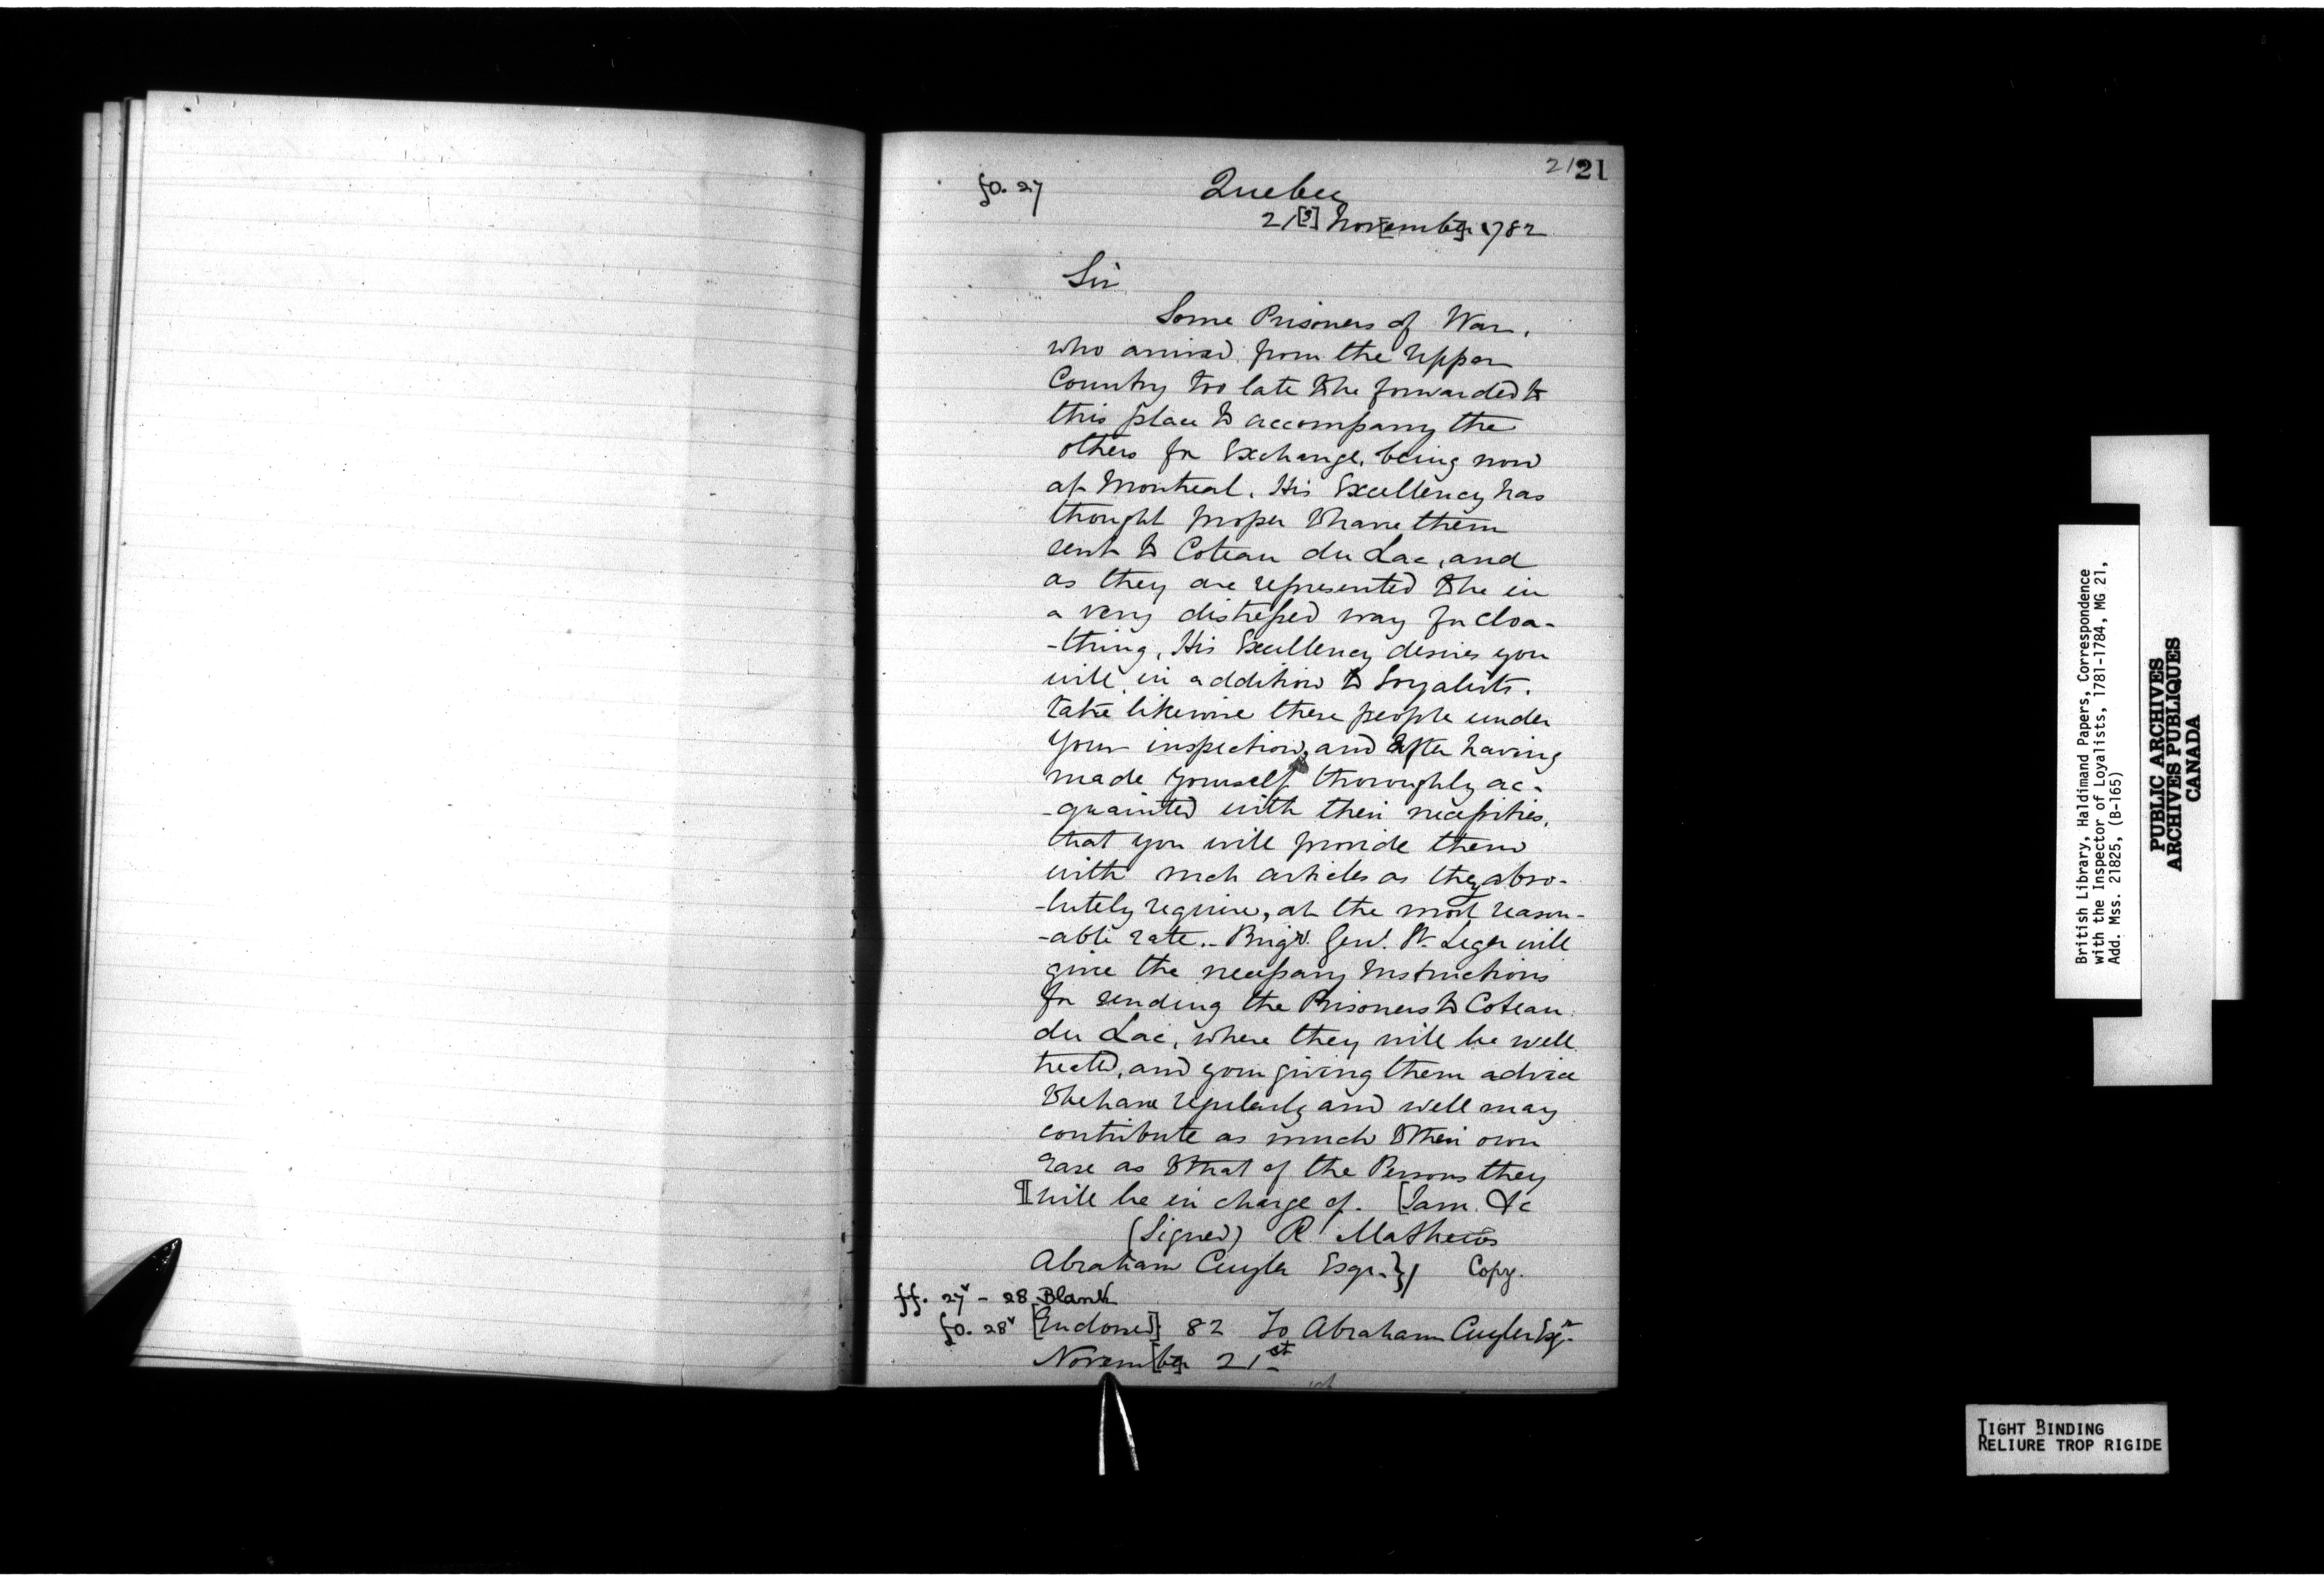 21 21
fo. 27
Quebec
21[s] Nov[ember] 1782
Sir
Some Prisoners of War,
who arrived from the Upper
Country too late to be forwarded to
this place to accompany the
others for Exchange, being now
at Montreal, His Excellency has
thought proper to have them
sent to Coteau du Lac, and
as they are represented to be in
a very distressed way for cloa-
-thing, His Excellency desires you
will, in addition to Loyalists,
take likewise these people under
your inspection, and after having
made yourself thoroughly ac-
-quainted with their necessities,
that you will provide them
with such articles as they abso-
-lutely require, at the most reason-
-able rate.- Brigr. Genl. St. Leger will
give the necessary Instructions
for sending the Prisoners to Coteau
du Lac, where they will be well
treated, and your giving them advice
to behave regularly and well may
contribute as much to their own
ease as to that of the Persons they
will be in charge of. [I am &c
(Signed) R Mathews
Abraham Cuyler Esqr.} Copy.
ff. 27v - 28 Blank
fo. 28v [Endorsed] 82 To Abraham Cuyler Esqr
Novem[ber] 21st
British Library, Haldimand Papers, Correspondence
with the Inspector of Loyalists, 1781-1784, MG 21,
Add. Mss. 21825, (B-165)
PUBLIC ARCHIVES
ARCHIVES PUBLIQUES
CANADA
TIGHT BINDING
RELIURE TROP RIGIDE